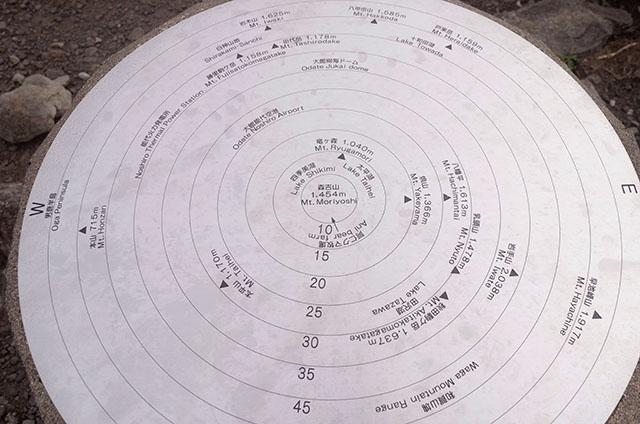 岩木山 1,625m
Mt. Iwaki
八甲田山 1,585m
Mt. Hakkoda
戸来岳 1,159m
Mt. Heraidake
白神山地
Shirakami-Sanchi
田代岳 1,178m
Mt. Tashirodake
十和田湖
Lake. Towada
藤里駒ケ岳 1,158m
Mt. Fujisatokomagatake
大館樹海ドーム
Odate Jukai dome
能代火力発電所
Noshiro Thermal Power Station
大館能代空港
Odate Noshiro Airport
竜ヶ森 1,040m
Mt. Ryugamori
四季美湖
Lake Shikimi
太平湖
Lake Taihei
森吉山
1,454m
Mt. Moriyoshi
焼山 1,366m
Mt. Yakeyama
八幡平 1,613m
Mt. Hachimantai
E
W
男鹿半島
Oga Peninsula
本山 715m
Mt. Honzan
阿仁クマ牧場
Ani bear farm
乳頭山 1,478m
Mt. Nyuto
岩手山 2,038m
Mt. Iwate
太平山 1,170m
Mt. Taihei
田沢湖
Lake Tazawa
秋田駒ケ岳 1,637m
Mt. Akitakomagatake
早池峰山 1,917m
Mt. Hayachine
和賀山塊
Waga Mountain Range
10
15
20
25
30
35
45